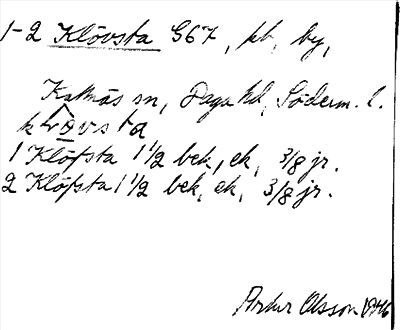 1-2 Klövsta 967, kb, by,
Kattnäs sn, Daga hd, Söderm. l.
1 Klöfsta 1 1/2 bek, ek, 3/8 jr.
2 Klöfsta 1 1/2 bek, ek, 3/8 jr.
Artur Olsson